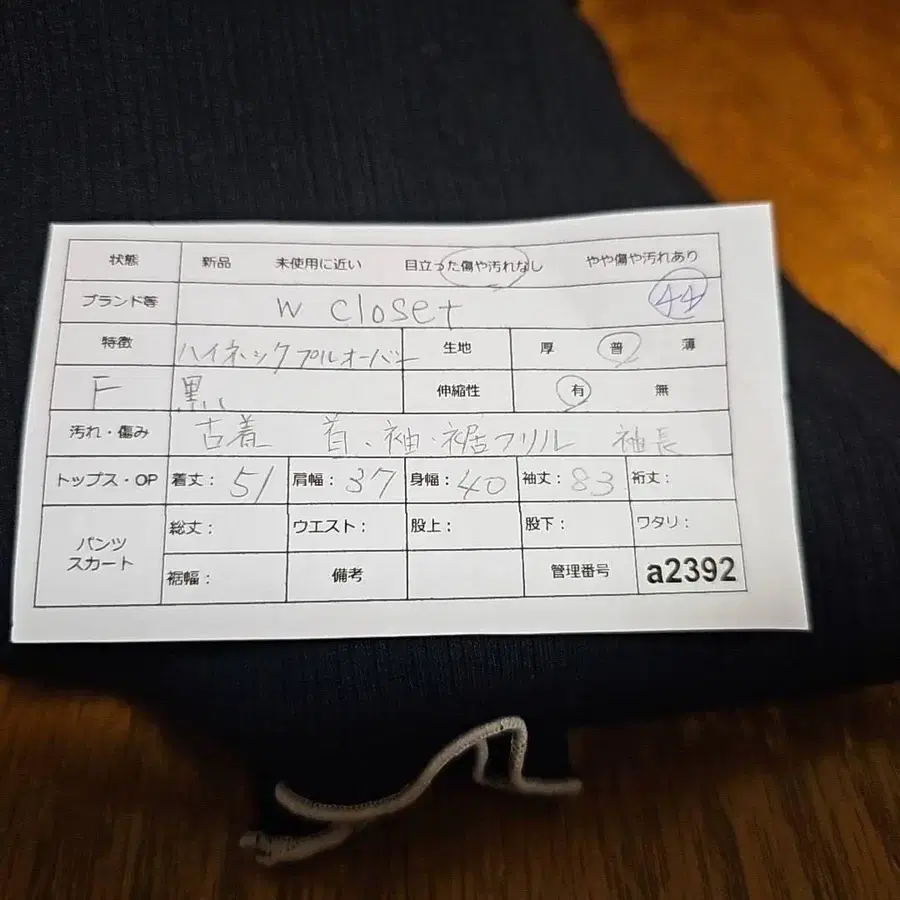 状態 新品 未使用に近い 目立った傷や汚れなし やや傷や汚れあり
ブランド等 w closet 44
特徴 ハイネックプルオーバー 生地 厚 普 薄
F 黒 伸縮性 有 無
汚れ・傷み 古着 首、袖・裾フリル 袖長
トップス・OP 着丈: 51 肩幅: 37 身幅: 40 袖丈: 83 裄丈:
パンツ スカート 総丈: ウエスト: 股上: 股下: ワタリ:
裾幅: 備考 管理番号 a2392